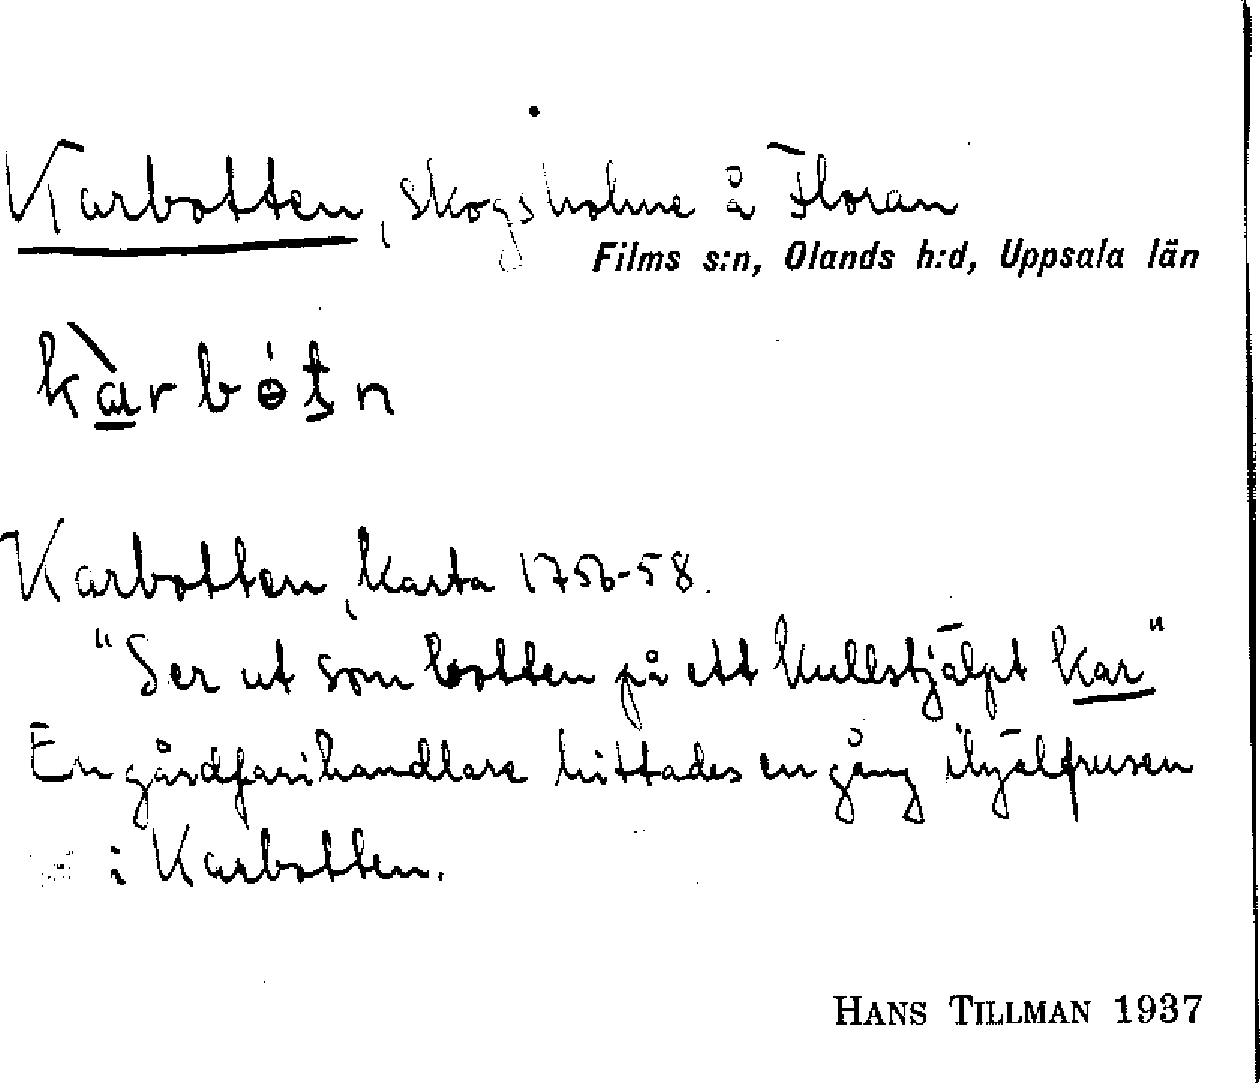 Karbotten, skogsholme å Floran
Films s:n, Olands h:d, Uppsala län
kàrbótn
Karbotten, karta 1756-58.
"Ser ut som botten på ett kullstjälpt kar"
En gårdfarihandlare hittades en gång ihjälfrusen
i Karbotten.
HANS TILLMAN 1937